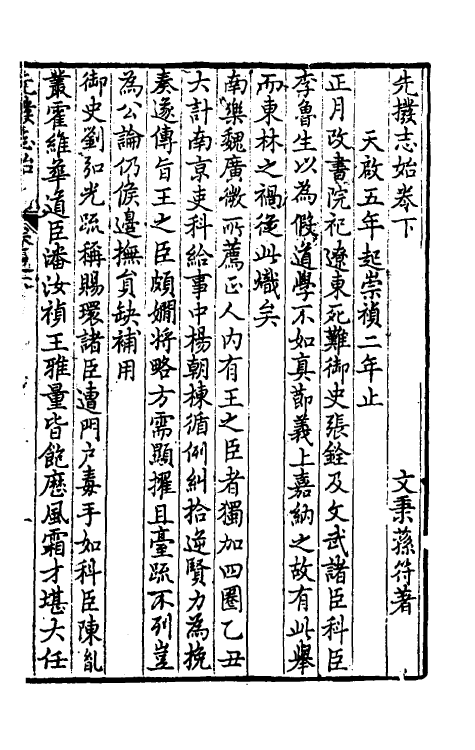 先撥志始卷下
文秉蓀符著
天啟五年起崇禎二年止
正月改書院祀遼東死難御史張銓及文武諸臣科臣
李魯生以為假道學不如真節義上嘉納之故有此舉
而東林之禍從此熾矣
南樂魏廣微所薦正人內有王之臣者獨加四圈乙丑
大計南京吏科給事中楊朝棟循例糾拾逆賢力為挽
奏遂傳旨王之臣頗嫻將略方需顯擢且臺疏不列豈
為公論仍俟邊撫員缺補用
御史劉弘光疏稱賜環諸臣遭門户毒手如科臣陳胤
叢霍維華道臣潘汝禎王雅量皆飽歷風霜才堪大任
先撥志始